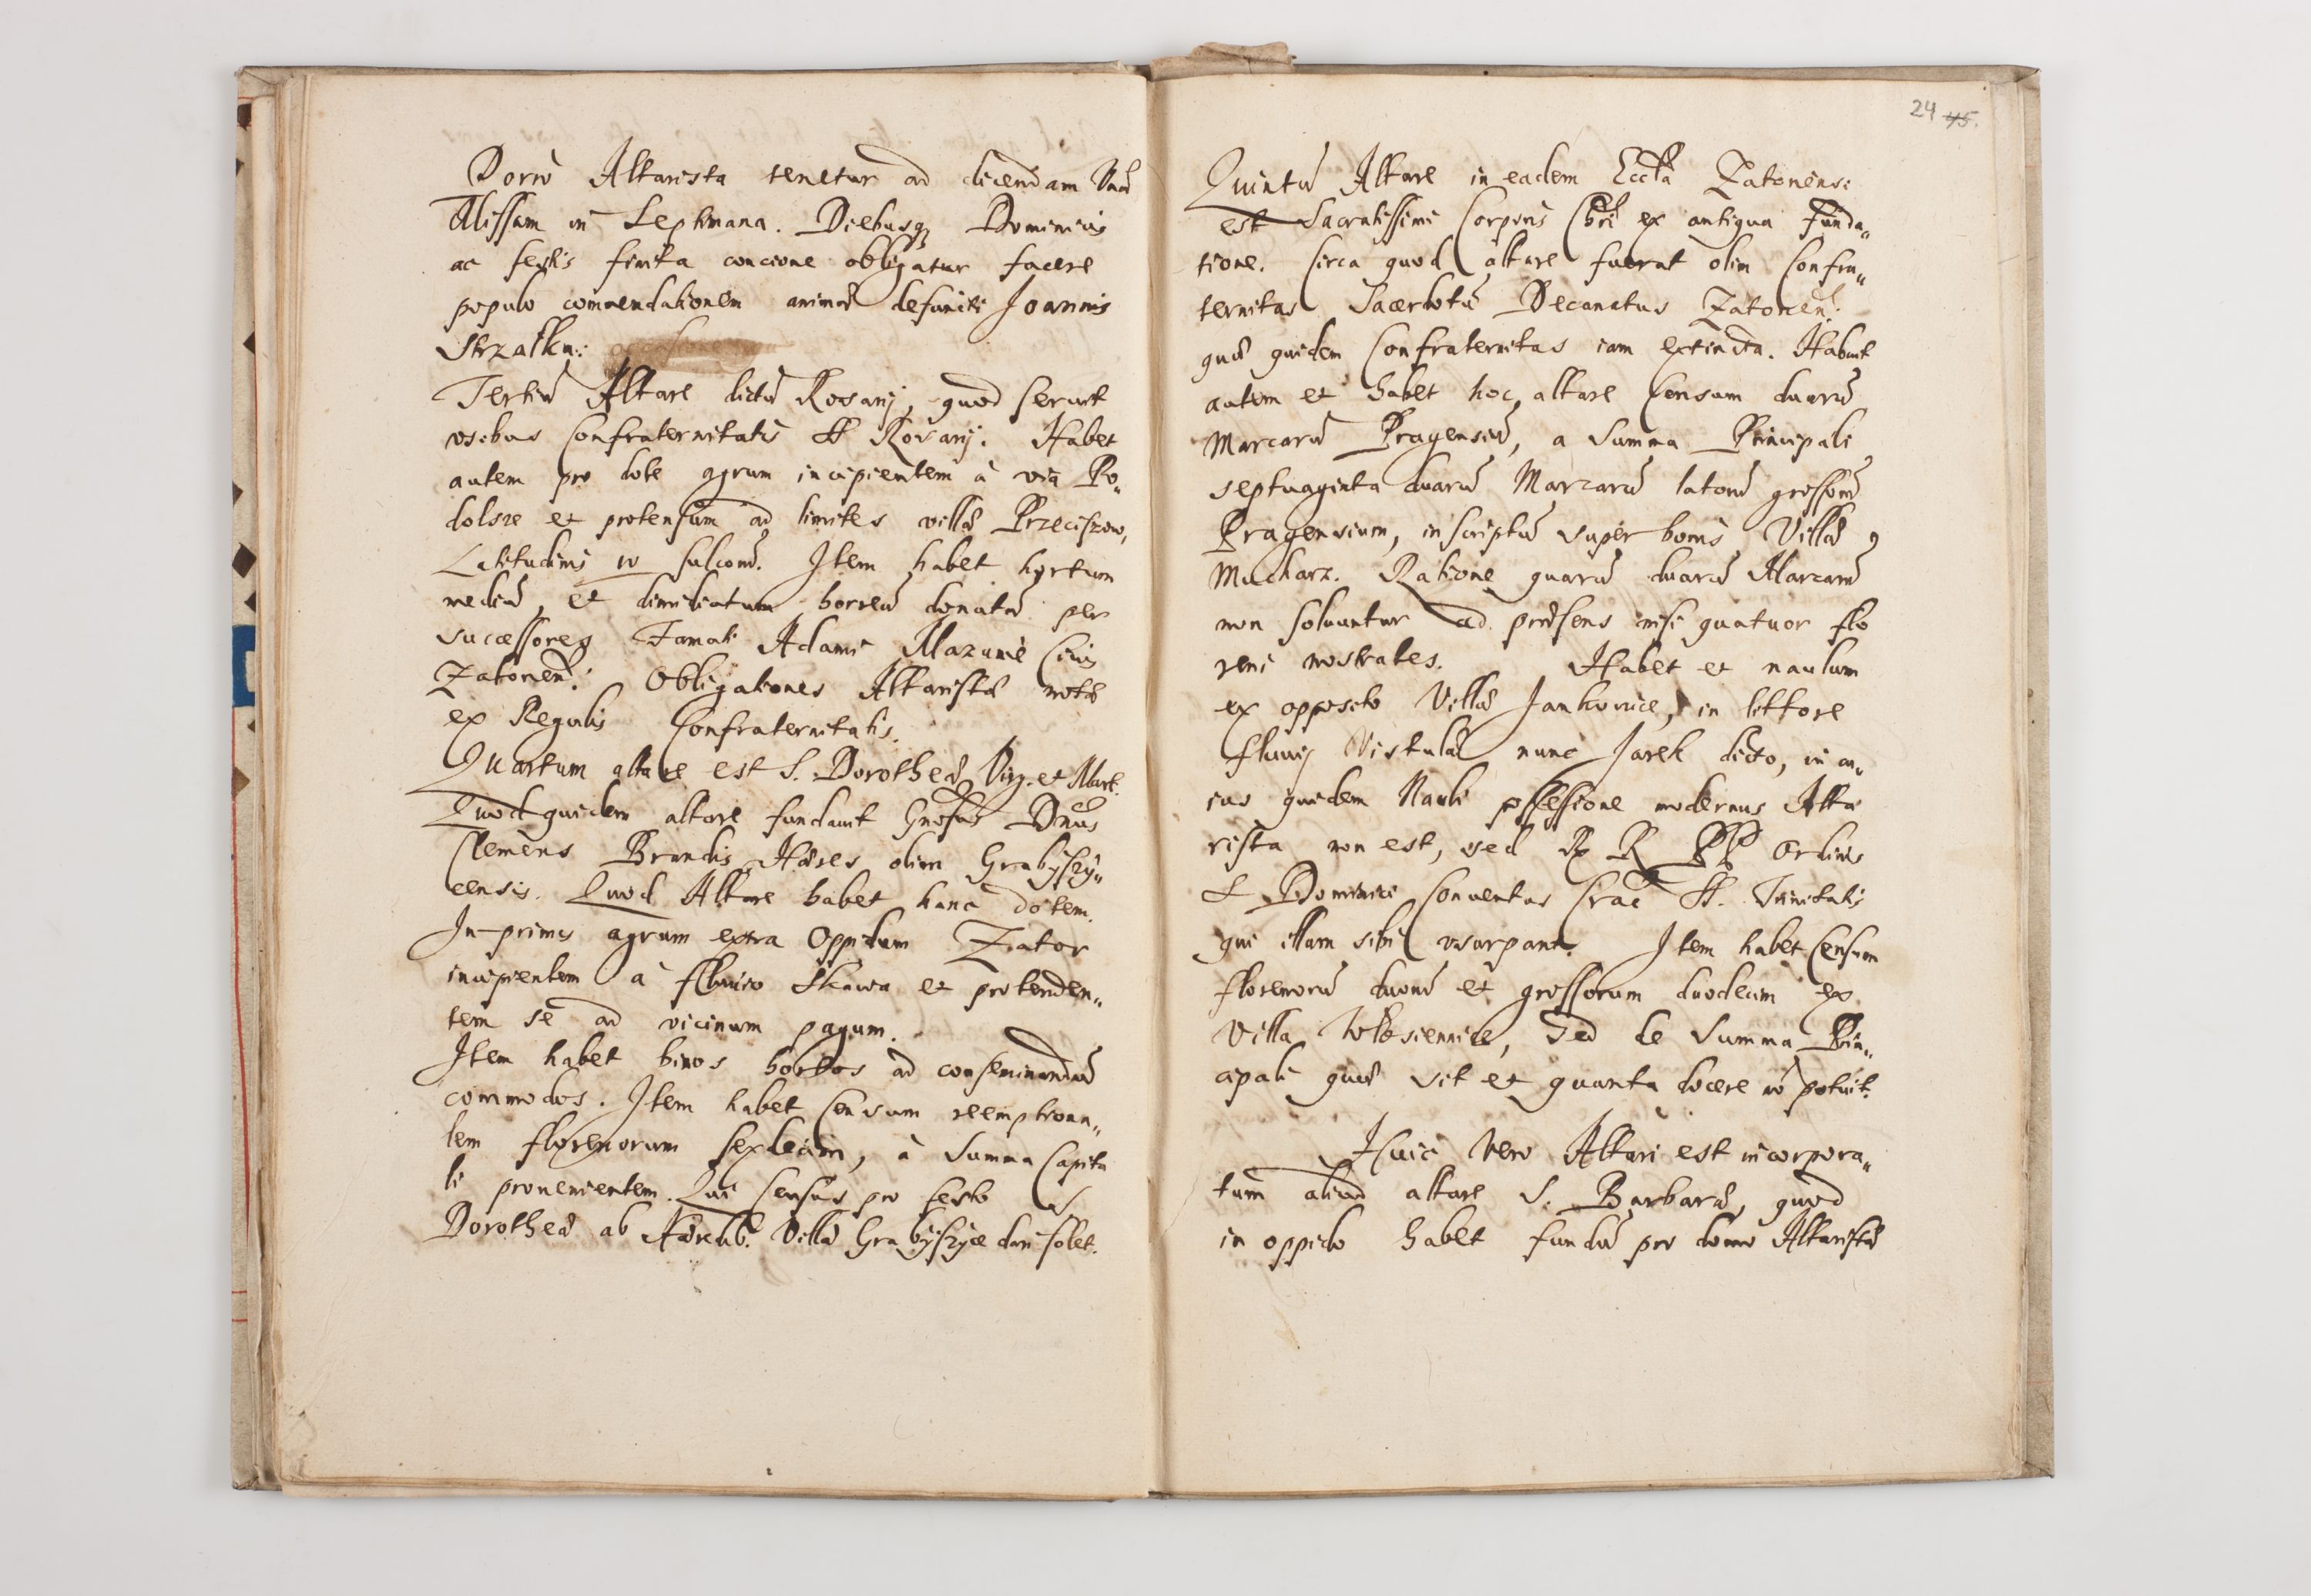 Porrò Altarista tenetur ad dicendam Vnā
Missam in Septimana. Diebusq; Dominicis
ac festis finita concione obligatur facere
populo commendationem animæ defuncti Joannis
Strzałka:
Tertiū Altare dictū Rosarij, quod seruit
vsibus Confraternitatis SS Rosarij. Habet
autem pro dote agrum incipientem à via Po„
dolsze et protensum ad limites villæ Przeciszow,
Latitudinis sulcorū. Item habet hortum
mediū, et dimidiatum horreū donatū per
successores Famati Adami Mazurie Ciuis
Zatorien: Obligationes Altaristæ notæ
ex Regulis Confraternitatis.
Quartum altare est S. Dorotheæ Virg. et Mart.
Quod quidem altare fundauit Gnosus Dnus
Clemens Brandis Hæres olim Grabyszy„
censis. Quod Altare habet hanc dotem.
In-primis agrum extra Oppidum Zator
incipientem à fluuio Skawa et protenden„
tem se ad vicinum pagum.
Item habet binos hortos ad conseminandū
commodos. Item habet Censum reemptiona„
lem florenorum sexdecim, à Summa Capita
li prouenientem. Qui Census pro festo S.
Dorotheæ ab Hæredib: Villæ Grabyszyce dari solet.
24 45.
Quintū Altare in eadem Eccła Zatoriensi
est Sacratissimi Corporis Chri ex antiqua funda„
tione. Circa quod altare fuerat olim Confra„
ternitas Sacerdotū Decanatus Zatorien:
quæ quidem Confraternitas iam extincta. Habuit
autem et habet hoc altare Censum duarū
Marcarū Pragensiū, a Summa Principali
septuaginta duarū Marcarū latorū grossorū
Pragensium, inscriptū super bonis Villæ
Mucharz. Ratione quarū duarū Marcarū
non soluuntur ad præsens nisi quatuor flo
reni nostrates. Habet et naulum
ex opposito Villæ Jankowice, in littore
fluuij Vistulæ nunc Jarek dicto, in cu„
ius quidem Nauli possessione modernus Alta
rista non est, sed RR PP Ordinis
S Dominici Conuentus Crac SS. Trinitatis
qui illam sibi vsurpant. Item habet Censum
florenorū duorū et grossorum duodecim ex
Villa Woźniki, Sed de Summa Prin„
cipali quæ sit et quanta docere nō potuit.
Huic vero Altari est incorpora„
tum aliud altare S. Barbaræ, quod
in oppido habet fundū pro domo Altaristæ